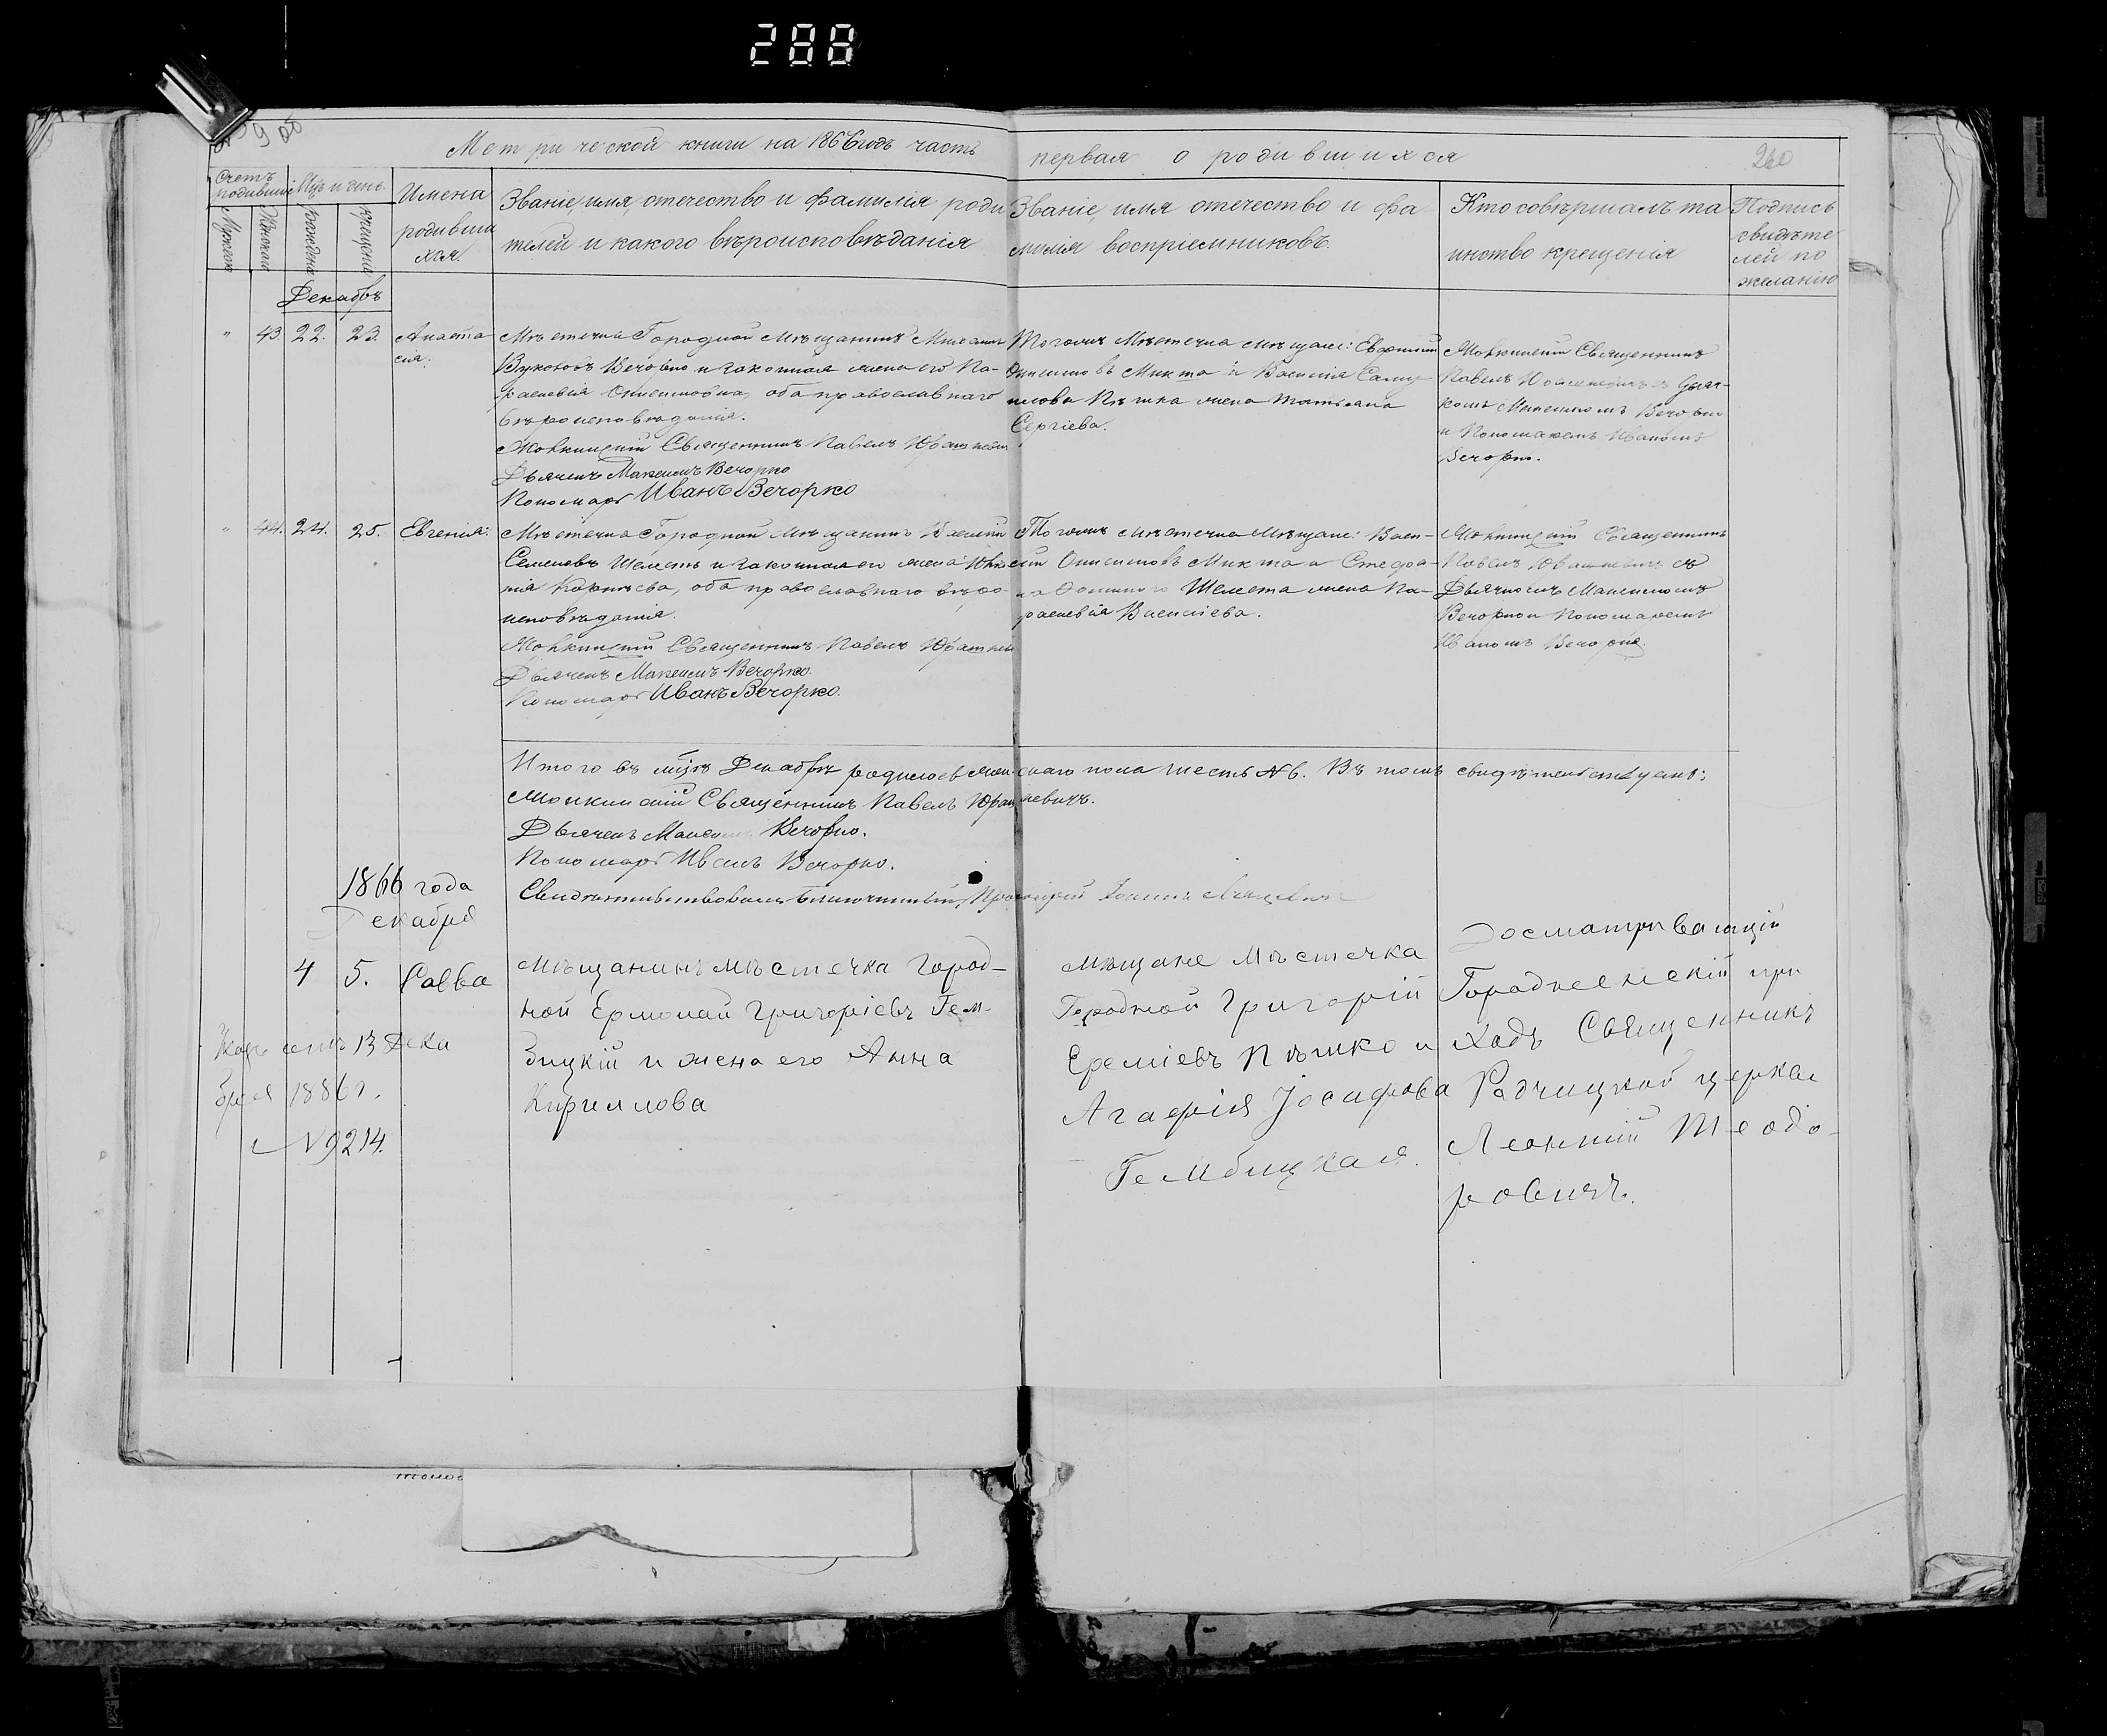 288
Метрической книги на 1866 годъ часть первая о родившихся
260
Счетъ родивших
Мужеска
Женска
Мцъ и день
рожденія
крещенія
Имена
родивши
хся.
Званіе, имя, отечество и фамилія роди
телей и какого вѣроисповѣданія
Званіе, имя отечество и фа
милія воспріемниковъ.
Кто совѣршалъ та
инство крещенія
Подпись
свидѣте
лей по
желанію
Декабрь
" 43. 22. 23.
Анаста
сія.
Мѣстечка Городной Мѣщанинъ
Вечорко и законная жена его Па-
раскевія Онисимова, оба православнаго
вѣроисповѣданія.
Священникъ Павелъ
Дьячекъ Максимъ Вечорко
Пономарь Иванъ Вечорко
Тогожъ Мѣстечка мѣщане: Евфимій
Онисимовъ Микта и Василія
Пѣшка жена Татьяна
Сергіева.
Священникъ
Павелъ съ Дьяч-
комъ Максимомъ Вечорко
и Пономаремъ Иваномъ
Вечорко.
" 44. 24. 25.
Евгенія:
Мѣстечка Городной Мѣщанинъ
Семеновъ Шеметъ и законная его жена
Корнѣева, оба православнаго вѣро-
исповѣданія.
Священникъ Павелъ
Дьячекъ Максимъ Вечорко.
Пономарь Иванъ Вечорко.
Тогожъ мѣстечка Мѣщане: Васи-
лій Онисимовъ Микта и Стефа-
на Шемета жена Па-
раскевія Василіева.
Священникъ
Павелъ съ
Дьячкомъ Максимомъ
Вечорко и Пономаремъ
Иваномъ Вечорко.
Итого въ мцѣ Декабрѣ родилось женскаго пола шесть № 6. Въ томъ свидѣтельствуемъ:
Священникъ Павелъ
Дьячекъ Вечорко.
Пономарь Иванъ Вечорко.
Свидѣтельствовалъ Благочинный
1866 года
Декабря
4 5. Савва
Мѣщанинъ мѣстечка Город-
ной Ермолай Григоріевъ Гем-
бицкій и жена его Анна
Кириллова
мѣщане Мѣстечка
Городной Григорій
Ереміевъ Пѣшко и
Агафія Іосифова
Гембицкая.
Досматривающій
Городненскій при
ходъ Священникъ
Радчицкой церкви
Леонтій Теодо-
ровичъ.
13 Дека
бря 1886 г.
№ 9214.